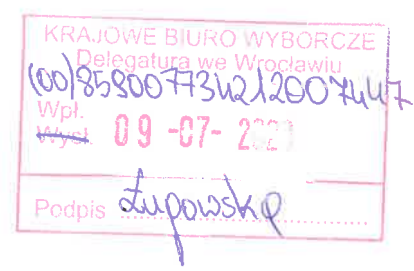 KRAJOWE BIURO WYBORCZE
Delegatura we Wrocławiu
(00)859007734212007447
Wpł.
Wysł. 09 -07- 2
Podpis Łupowska